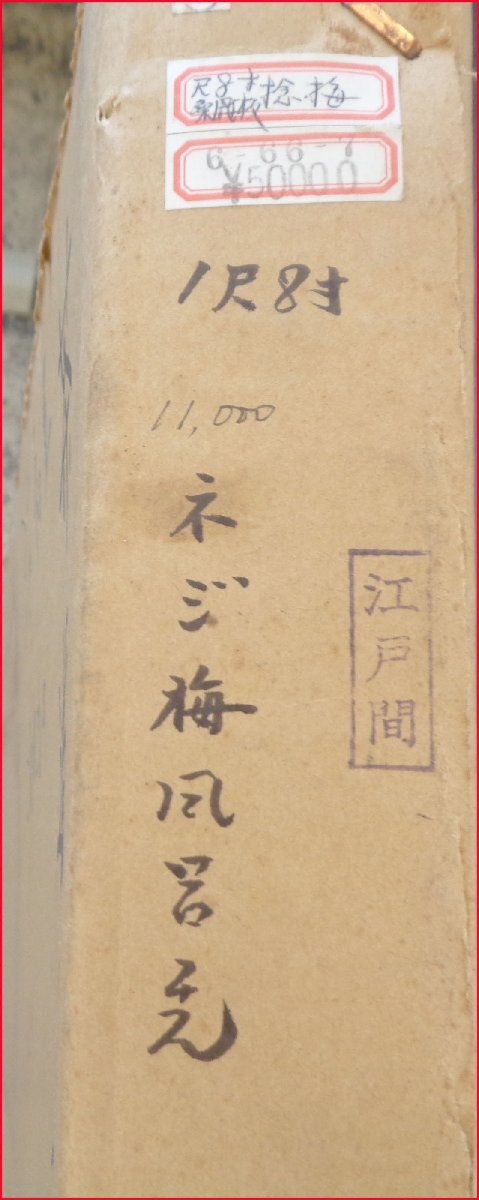 尺8寸 捻梅
6-66-7
¥50000
1尺8寸
11,000
ネジ梅風呂先
江戸間